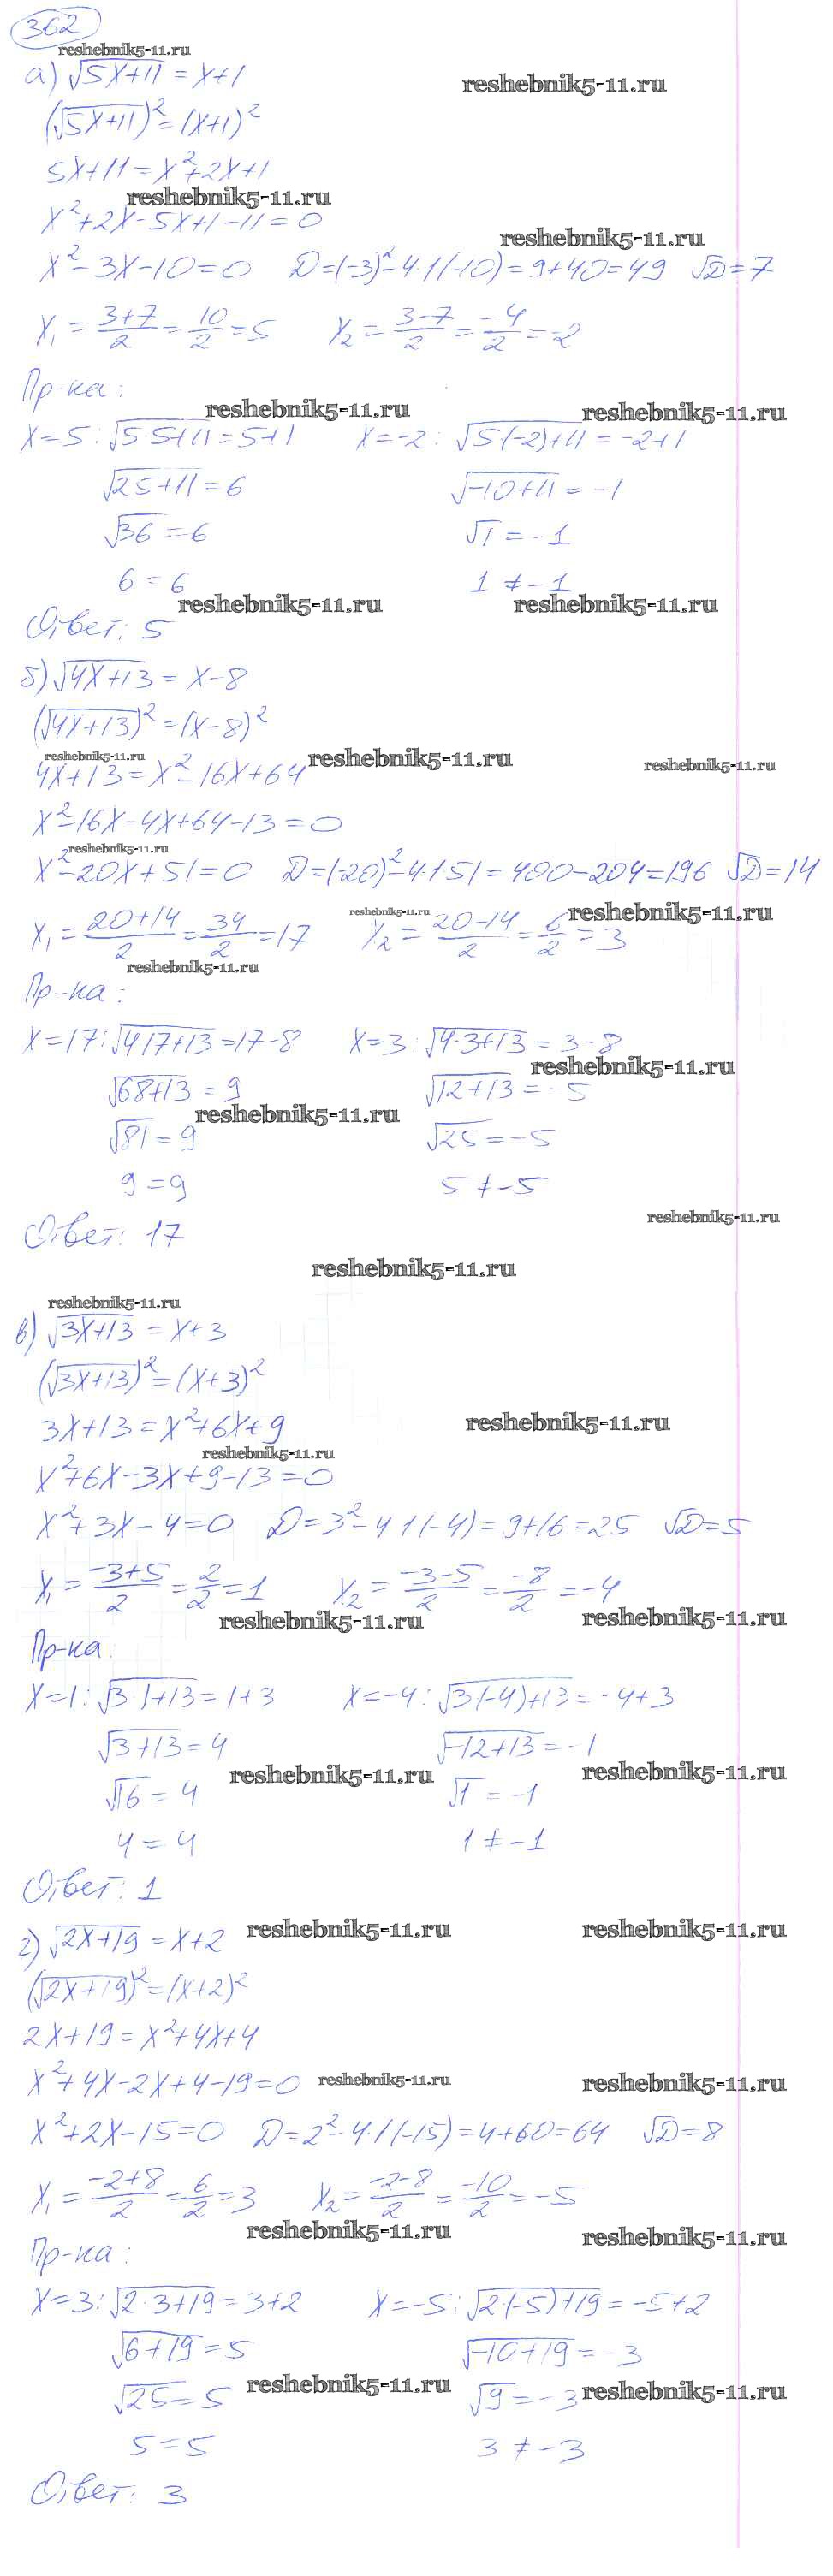 362
reshebnik5-11.ru
а) √5x+11 = x+1
reshebnik5-11.ru
(√5x+11)² = (x+1)²
5x+11 = x²+2x+1
reshebnik5-11.ru
x²+2x-5x+1-11=0
reshebnik5-11.ru
x²-3x-10=0 D=(-3)²-4·1(-10)=9+40=49 √D=7
x₁ = 3+7/2 = 10/2 = 5 x₂ = 3-7/2 = -4/2 = -2
Пр-ка:
reshebnik5-11.ru reshebnik5-11.ru
x=5: √5·5+11=5+1 x=-2: √5(-2)+11=-2+1
√25+11=6 √-10+11=-1
√36=6 √1=-1
6=6 1≠-1
reshebnik5-11.ru reshebnik5-11.ru
Ответ: 5
б) √4x+13 = x-8
(√4x+13)² = (x-8)²
reshebnik5-11.ru reshebnik5-11.ru reshebnik5-11.ru
4x+13=x²-16x+64
x²-16x-4x+64-13=0
reshebnik5-11.ru
x²-20x+51=0 D=(-20)²-4·1·51=400-204=196 √D=14
reshebnik5-11.ru reshebnik5-11.ru
x₁ = 20+14/2 = 34/2 = 17 x₂ = 20-14/2 = 6/2 = 3
reshebnik5-11.ru
Пр-ка:
x=17: √4·17+13=17-8 x=3: √4·3+13=3-8
reshebnik5-11.ru
√68+13=9 √12+13=-5
reshebnik5-11.ru
√81=9 √25=-5
9=9 5≠-5
reshebnik5-11.ru
Ответ: 17
reshebnik5-11.ru
reshebnik5-11.ru
в) √3x+13 = x+3
(√3x+13)² = (x+3)²
3x+13=x²+6x+9
reshebnik5-11.ru
reshebnik5-11.ru
x²+6x-3x+9-13=0
x²+3x-4=0 D=3²-4·1(-4)=9+16=25 √D=5
x₁ = -3+5/2 = 2/2 = 1 x₂ = -3-5/2 = -8/2 = -4
reshebnik5-11.ru reshebnik5-11.ru
Пр-ка:
x=1: √3·1+13=1+3 x=-4: √3(-4)+13=-4+3
√3+13=4 √-12+13=-1
reshebnik5-11.ru reshebnik5-11.ru
√16=4 √1=-1
4=4 1≠-1
Ответ: 1
reshebnik5-11.ru reshebnik5-11.ru
г) √2x+19 = x+2
(√2x+19)² = (x+2)²
2x+19=x²+4x+4
x²+4x-2x+4-19=0
reshebnik5-11.ru reshebnik5-11.ru
x²+2x-15=0 D=2²-4·1(-15)=4+60=64 √D=8
x₁ = -2+8/2 = 6/2 = 3 x₂ = -2-8/2 = -10/2 = -5
reshebnik5-11.ru reshebnik5-11.ru
Пр-ка:
x=3: √2·3+19=3+2 x=-5: √2·(-5)+19=-5+2
√6+19=5 √-10+19=-3
reshebnik5-11.ru reshebnik5-11.ru
√25=5 √9=-3
5=5 3≠-3
Ответ: 3